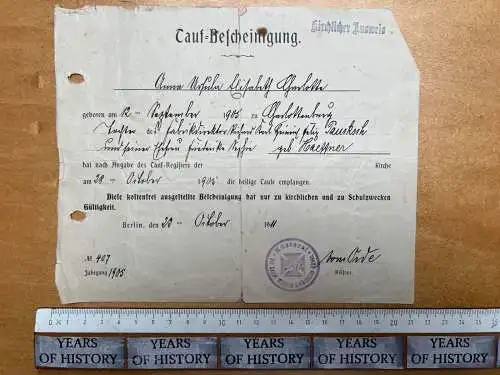 Kirchlicher Ausweis
Tauf-Bescheinigung.
Anna Ursula Elisabeth Charlotte
geboren am September 1905 zu Charlottenburg
Tochter des Fabrikdirektor Felix
und seiner Friederike Sophie geb
hat nach Angabe des Tauf-Registers der Kirche
am 28 Oktober 1905 die heilige Taufe empfangen.
Diese kostenfrei ausgestellte Bescheinigung hat nur zu kirchlichen und zu Schulzwecken
Gültigkeit.
Berlin, den 20 Oktober 11
№ 407
Jahrgang 1905
Küster.
0 1 2 3 4 5 6 7 8 9 10 11 12 13 14 15 16 17 18 19 20 21 22 23 24 25
YEARS OF HISTORY YEARS OF HISTORY YEARS OF HISTORY YEARS OF HISTORY YEARS OF HISTORY